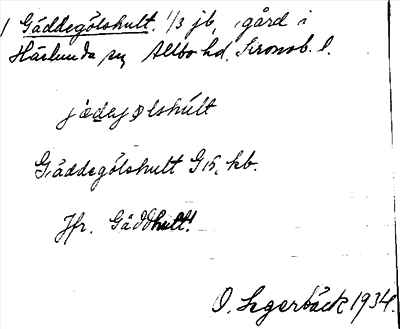 1 Gäddegölshult. 1/3 jb, gård i
Härlunda sn, Allbo hd. Kronob. l.
Gäddegölshult G 15, kb.
Jfr. Gäddhult!
O. Segerbäck 1934.